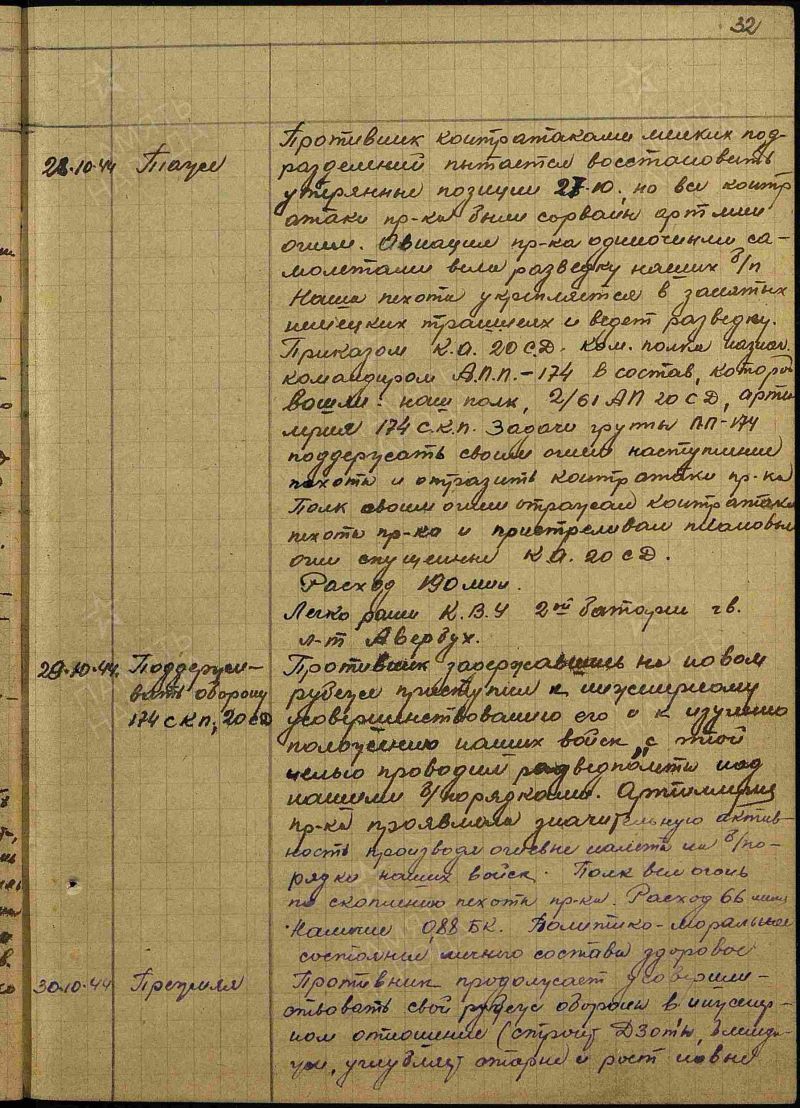 32
28.10.44
Противник контратаками мелких под-
разделений пытается восстановить
утерянные позиции 27.10, но все контр
атаки пр-ка были сорваны арт мин
огнем. Авиация пр-ка одиночными са-
молетами вела разведку наших б/п
Наша пехота укрепляется в занятых
немецких траншеях и ведет разведку.
Приказом К.А. 20 С.Д. ком. полка назнач.
командиром А.П.П.-174 в состав, которой
вошли: наш полк, 2/61 АП 20 СД, арти
лерия 174 С.К.П. Задачи группы ПП-174
поддержать своим огнем наступление
пехоты и отразить контратаки пр-ка
Полк своим огнем отражал контратаки
пехоты пр-ка и пристреливал плановые
огни спущенные К.А. 20 СД.
Расход 190 мин.
Легко ранен К.В.У 2ой батареи гв.
л-т Авербух.
29.10.44. Поддержи-
вать оборону
174 СКП, 20 СД
Противник задержавшись на новом
рубеже приступил к инженерному
усовершенствованию его и к изучению
положению наших войск, с этой
целью проводил разведполеты над
нашими б/порядками. Артиллерия
пр-ка проявляла значительную актив-
ность производя огневые налеты на б/по-
рядки наших войск. Полк вел огонь
по скоплению пехоты пр-ка. Расход 66 мин
Наличие 0,88 БК. Политико-моральное
состояние личного состава здоровое
30.10.44 Прежняя
Противник продолжает усовершен-
ствовать свой рубеж обороны в инженер-
ном отношение (строит ДЗоты, блинда-
жи, углубляет старые и роет новые